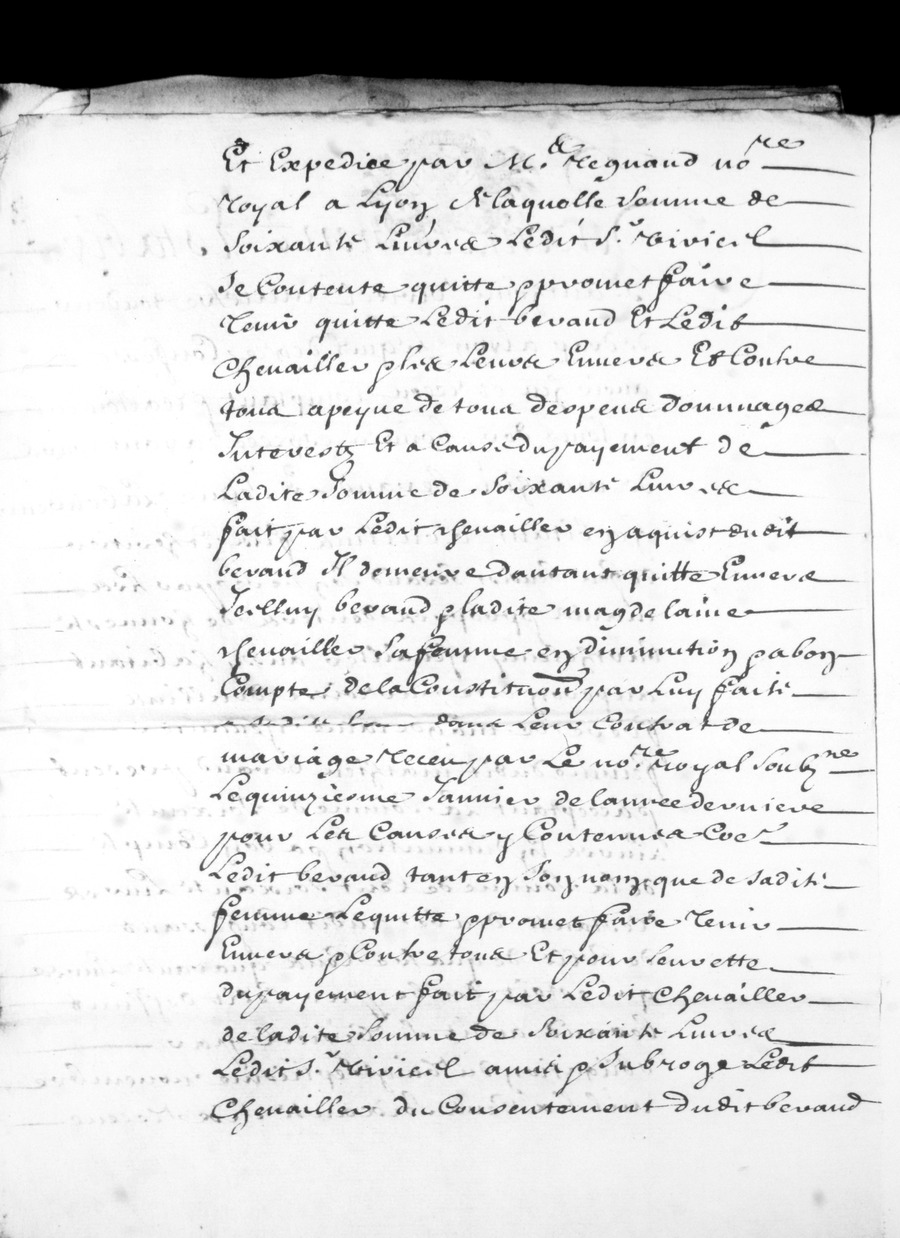 Et Expediee par Me. Regnaud nore
royal a Lyon de laquelle somme de
soixante Liures Ledit Sr. Riviere
se Contente quitte & promet faire
tenir quitte Ledit beraud Et Ledit
Cheuaillier & les Leurs Enuers Et Contre
tous apeyne de tous despens dommages
Interestz Et a Cause du payement de
Ladite somme de soixante Liures
fait par Ledit cheuaillier en aquist dudit
beraud Il demeure dautant quitte Enuers
Icelluy beraud & ladite magdelaine
cheuaillier sa femme en diminution & a bon
Compte de la Constituon par Luy faite
dans Leur Contrat de
mariage receu par Le nore. royal soubzne
Le quinziesme Januier de lannee derniere
pour Les Causes y Contenues
Ledit beraud tant en son nom que de sadite
femme Le quitte & promet faire tenir
Enuers & Contre tous Et pour seurette
du payement fait par Ledit Cheuaillier
de ladite somme de soixante Liures
Ledit Sr. Riviere a mis & subroge Ledit
Cheuaillier du Consentement dudit beraud